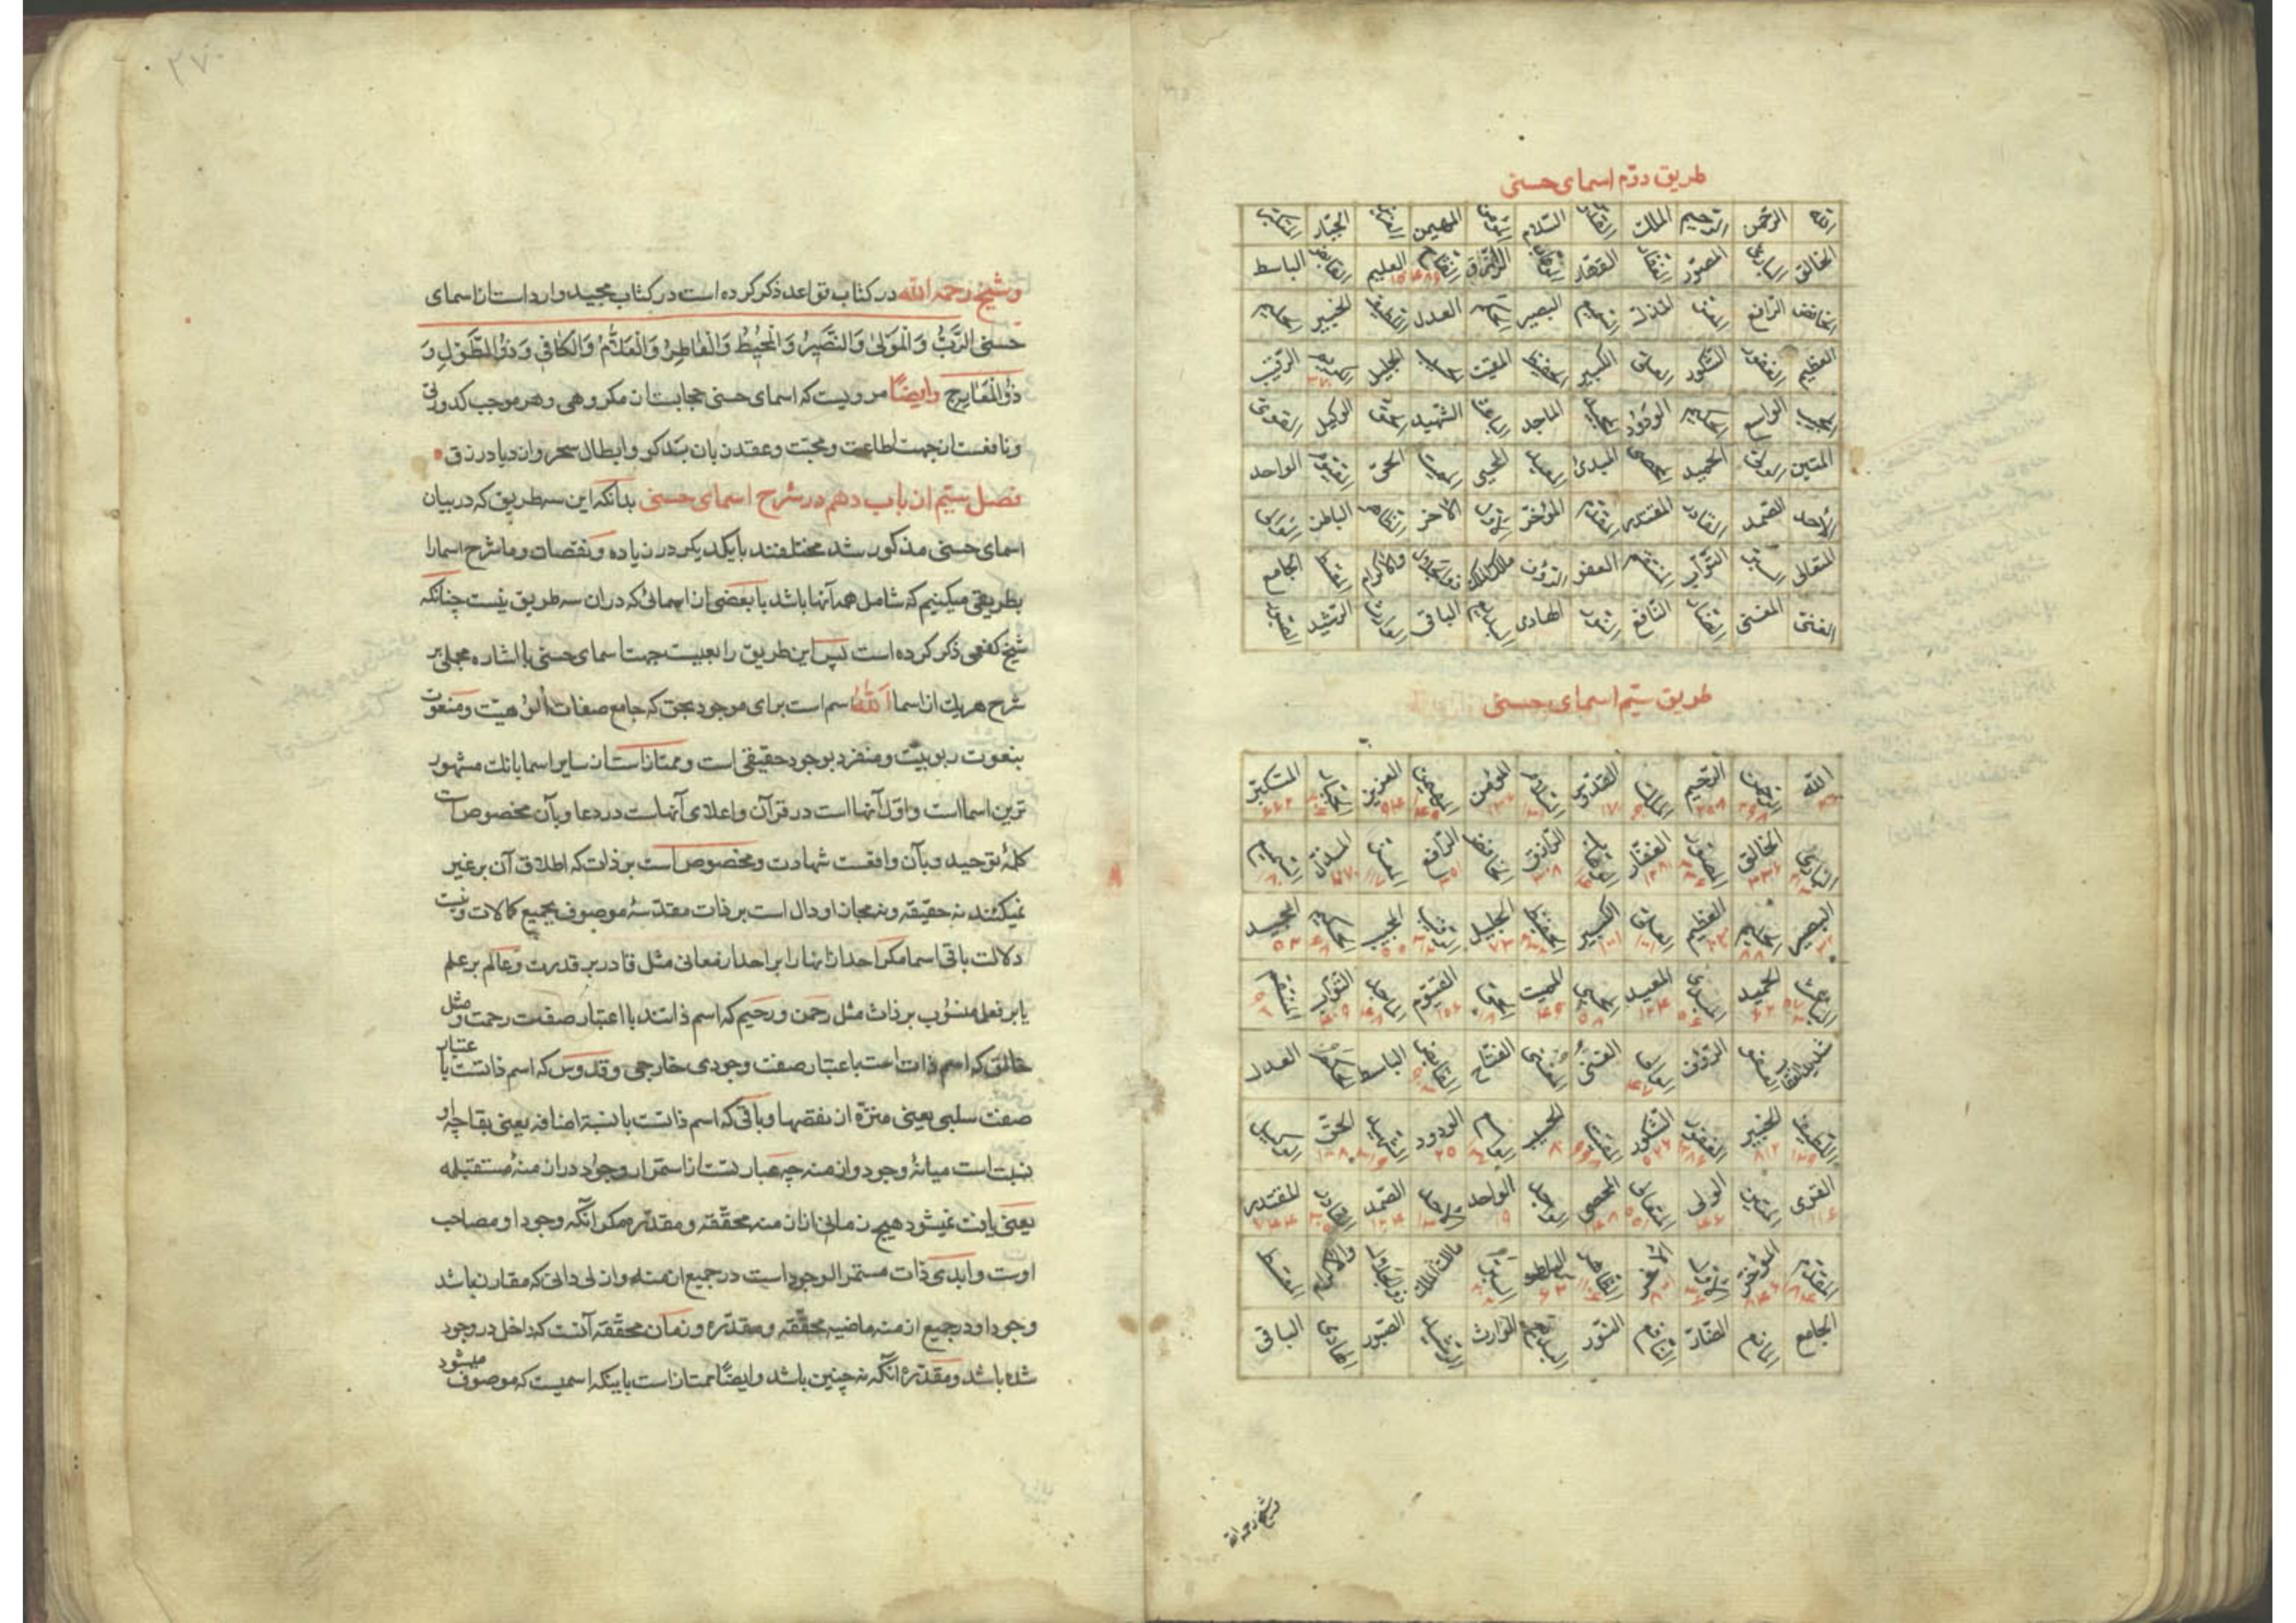 طریق دوّم اسمای حسنی
الله الرّحمن الرّحیم الملك القدّوس السّلام المؤمن المهیمن العزیز الجبّار المتکبّر
الخالق الباریٔ المصوّر الغفّار القهّار الوهّاب الرّزّاق الفتّاح ۴۸۹ العلیم ۱۵۰ القابض الباسط
الخافض الرّافع المعزّ المذلّ السّمیع البصیر الحکم العدل اللّطیف الخبیر الحلیم
العظیم الغفور الشّکور العلیّ الکبیر الحفیظ المقیت الحسیب الجلیل الکریم ۲۷۰ الرّقیب
المجیب الواسع الحکیم الودُود المجید الماجد الباعث الشّهید الحقّ الوکیل القوی
المتین الولیّ الحمید المحصی المبدیٔ المعید المحیی الممیت الحیّ القیّوم الواحد
الأحد الصّمد القادر المقتدر المقدّم المؤخّر الأوّل الآخر الظّاهر الباطن الوالی
المتعالی البرّ التوّاب المنتقم العفو الرّؤف مالك الملك ذو الجلال والاکرام المقسط الجامع
الغنیّ المغنی الضّارّ النّافع النّور الهادی البدیع الباقی الوارث الرّشید الصّبور
طریق سیّم اسمای حسنی
الله الرّحمن الرّحیم الملك القدّوس السّلام المؤمن المهیمن العزیز الجبّار المتکبّر
البارئ الخالق المصوّر الغفّار الوهّاب الرّازق الخافض الرّافع المعزّ المذلّ السّمیع
البصیر الحلیم العظیم العلیّ الکبیر الحفیظ الجلیل الرّقیب المجیب الحکیم المجید
الباعث الحمید المبدی المعید المحیی الممیت الحیّ القیّوم الماجد التّوّاب المنتقم
شدید العقاب العفو الرّؤف الوالی الغنیّ المغنی الفتّاح القابض الباسط الحکم العدل
اللّطیف الخبیر الغفور الشّکور المقیت الحسیب الواسع الودود الشّهید الحقّ الوکیل
القوی المتین الولی المتعالی المحصی الواجد الواحد الأحد الصّمد القادر المقتدر
المقدّم المؤخّر الأوّل الآخر الظّاهر الباطن البرّ مالك الملك ذو الجلال والاکرام المقسط
الجامع المانع الضّارّ النّافع النّور البدیع الوارث الرّشید الصّبور الهادی الباقی
وشیخ رحمه الله
۲۷
وشیخ رحمه الله در کتاب قواعد ذکر کرده است در کتاب مجید وارداست از اسمای
حسنی الرَّبُّ وَالْمَوْلیٰ وَالنَّصیرُ وَالْمُحیطُ وَالْفاطِرُ وَالْعَلاّمُ وَالْکافی وَذُوالطَّوْلِ وَ
ذُوالْمَعارِجِ وایضًا مرویست که اسمای حسنی حجابست از مکروهی و هر موجب کدورتی
ونافعست از جهت اطاعت و محبّت وعقد زبان بدکو وابطال سحر وازدیاد رزق
فصل سیّم از باب دهم در شرح اسمای حسنی بدانکه این سه طریق که در بیان
اسمای حسنی مذکور شد مختلفند بایکدیکر در زیاده و نقصان وما شرح اسما را
بطریقی میکنیم که شامل همه آنها باشد با بعضی از اسمائی که در ان سه طریق نیست چنانکه
شیخ کفعمی ذکر کرده است پس این طریق رابعیست جهت اسمای حسنی با اشاره مجملی بر
شرح هریك از اسما اَللّٰهُ اسم است برای موجود بحق که جامع صفات الوهیّت ومنعوت
بنعوت ربوبیّت ومنفرد بوجود حقیقی است وممتاز است از سایر اسما بانك مشهور
ترین اسما است واوّل آنها است در قرآن واعلای آنهاست در دعا وبآن مخصوص است
کلمهٔ توحید وبآن واقعست شهادت ومخصوص است بر ذات که اطلاق آن بر غیر
نمیکنند نه حقیقه و نه مجاز او دال است بر ذات مقدّسهٔ موصوف بجمیع کمالات ونیست
دلالت باقی اسما مکر احدازانها را بر احداز معانی مثل قادر بر قدرت وعالم بر علم
یا بر فعلی منسُوب بر ذات مثل رحمن ورحیم که اسم ذاتند با اعتبار صفت رحمت ومثل
خالق که اسم ذات است باعتبار صفت وجودی خارجی وقدوس که اسم ذاتست با عتبار
صفت سلبی یعنی منزّه از نقصها وباقی که اسم ذاتست با نسبة اضافه یعنی بقا چه او
نسبت است میانهٔ وجود وازمنه چه عبارتست از استمرار وجُود در ازمنهٔ مستقبله
یعنی یافت نمیشود هیچ زمانی از ازمنه محقّقه و مقدّره مکر انکه وجود او مصاحب
اوست وابدی ذات مستمر الوجود است در جمیع ازمنه وازلی ذاتی که مقارن باشد
وجود او در جمیع ازمنه ماضیه محقّقه ومقدّره وزمان محقّقه آنست که داخل در وجود
شده باشد ومقدّرهٔ انکه نه چنین باشد وایضًا ممتاز است باینکه اسمیست که موصوف میشود